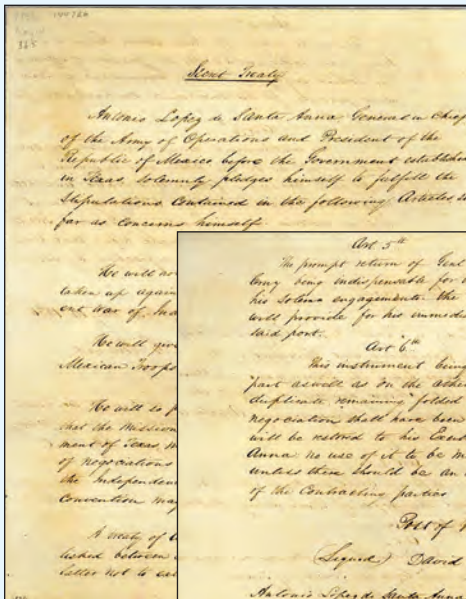 Secret Treaty
Antonio Lopez de Santa Anna General in Chief
of the Army of Operations and President of the
Republic of Mexico before the Government established
in Texas, solemnly pledges himself to fulfill the
Stipulations contained in the following Articles so
far as concerns himself
He will
taken up again
ent war of
He will
Mexican Troops
He will so
that the mission
ment of Texas
of negociations
the Independen
convention may
A treaty of
lished between
latter not to
Art 5th
The prompt return of Genl
Army being indispensable for
his solemn engagements the
will provide for his immedi
said port.
Art 6th
This instrument being
part as well as on the
duplicate remaining folded
negociation shall have been
will be restored to his
Anna no use of it to be
unless there should be an
of the contracting parties
Port of
(Signed) David
Antonio Lopez de Santa Anna